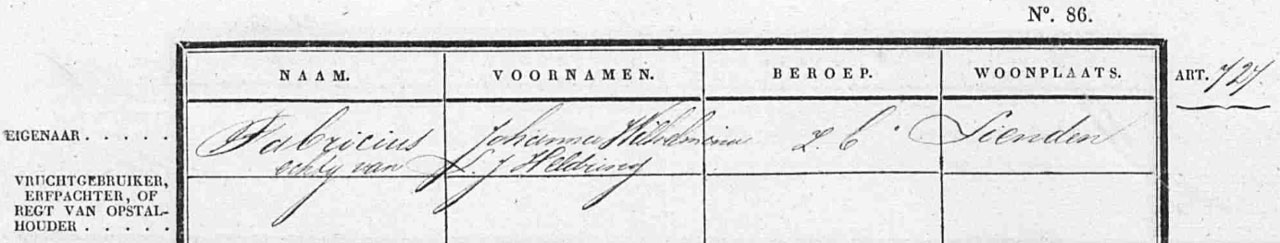 N°. 86.
NAAM. VOORNAMEN. BEROEP. WOONPLAATS. ART. 727.
EIGENAAR . . . . . . Fabricius Johanna Wilhelmina Z. B. Lienden
echtg van L. J Heldring
VRUCHTGEBRUIKER,
ERFPACHTER, OF
REGT VAN OPSTAL-
HOUDER . . . . .